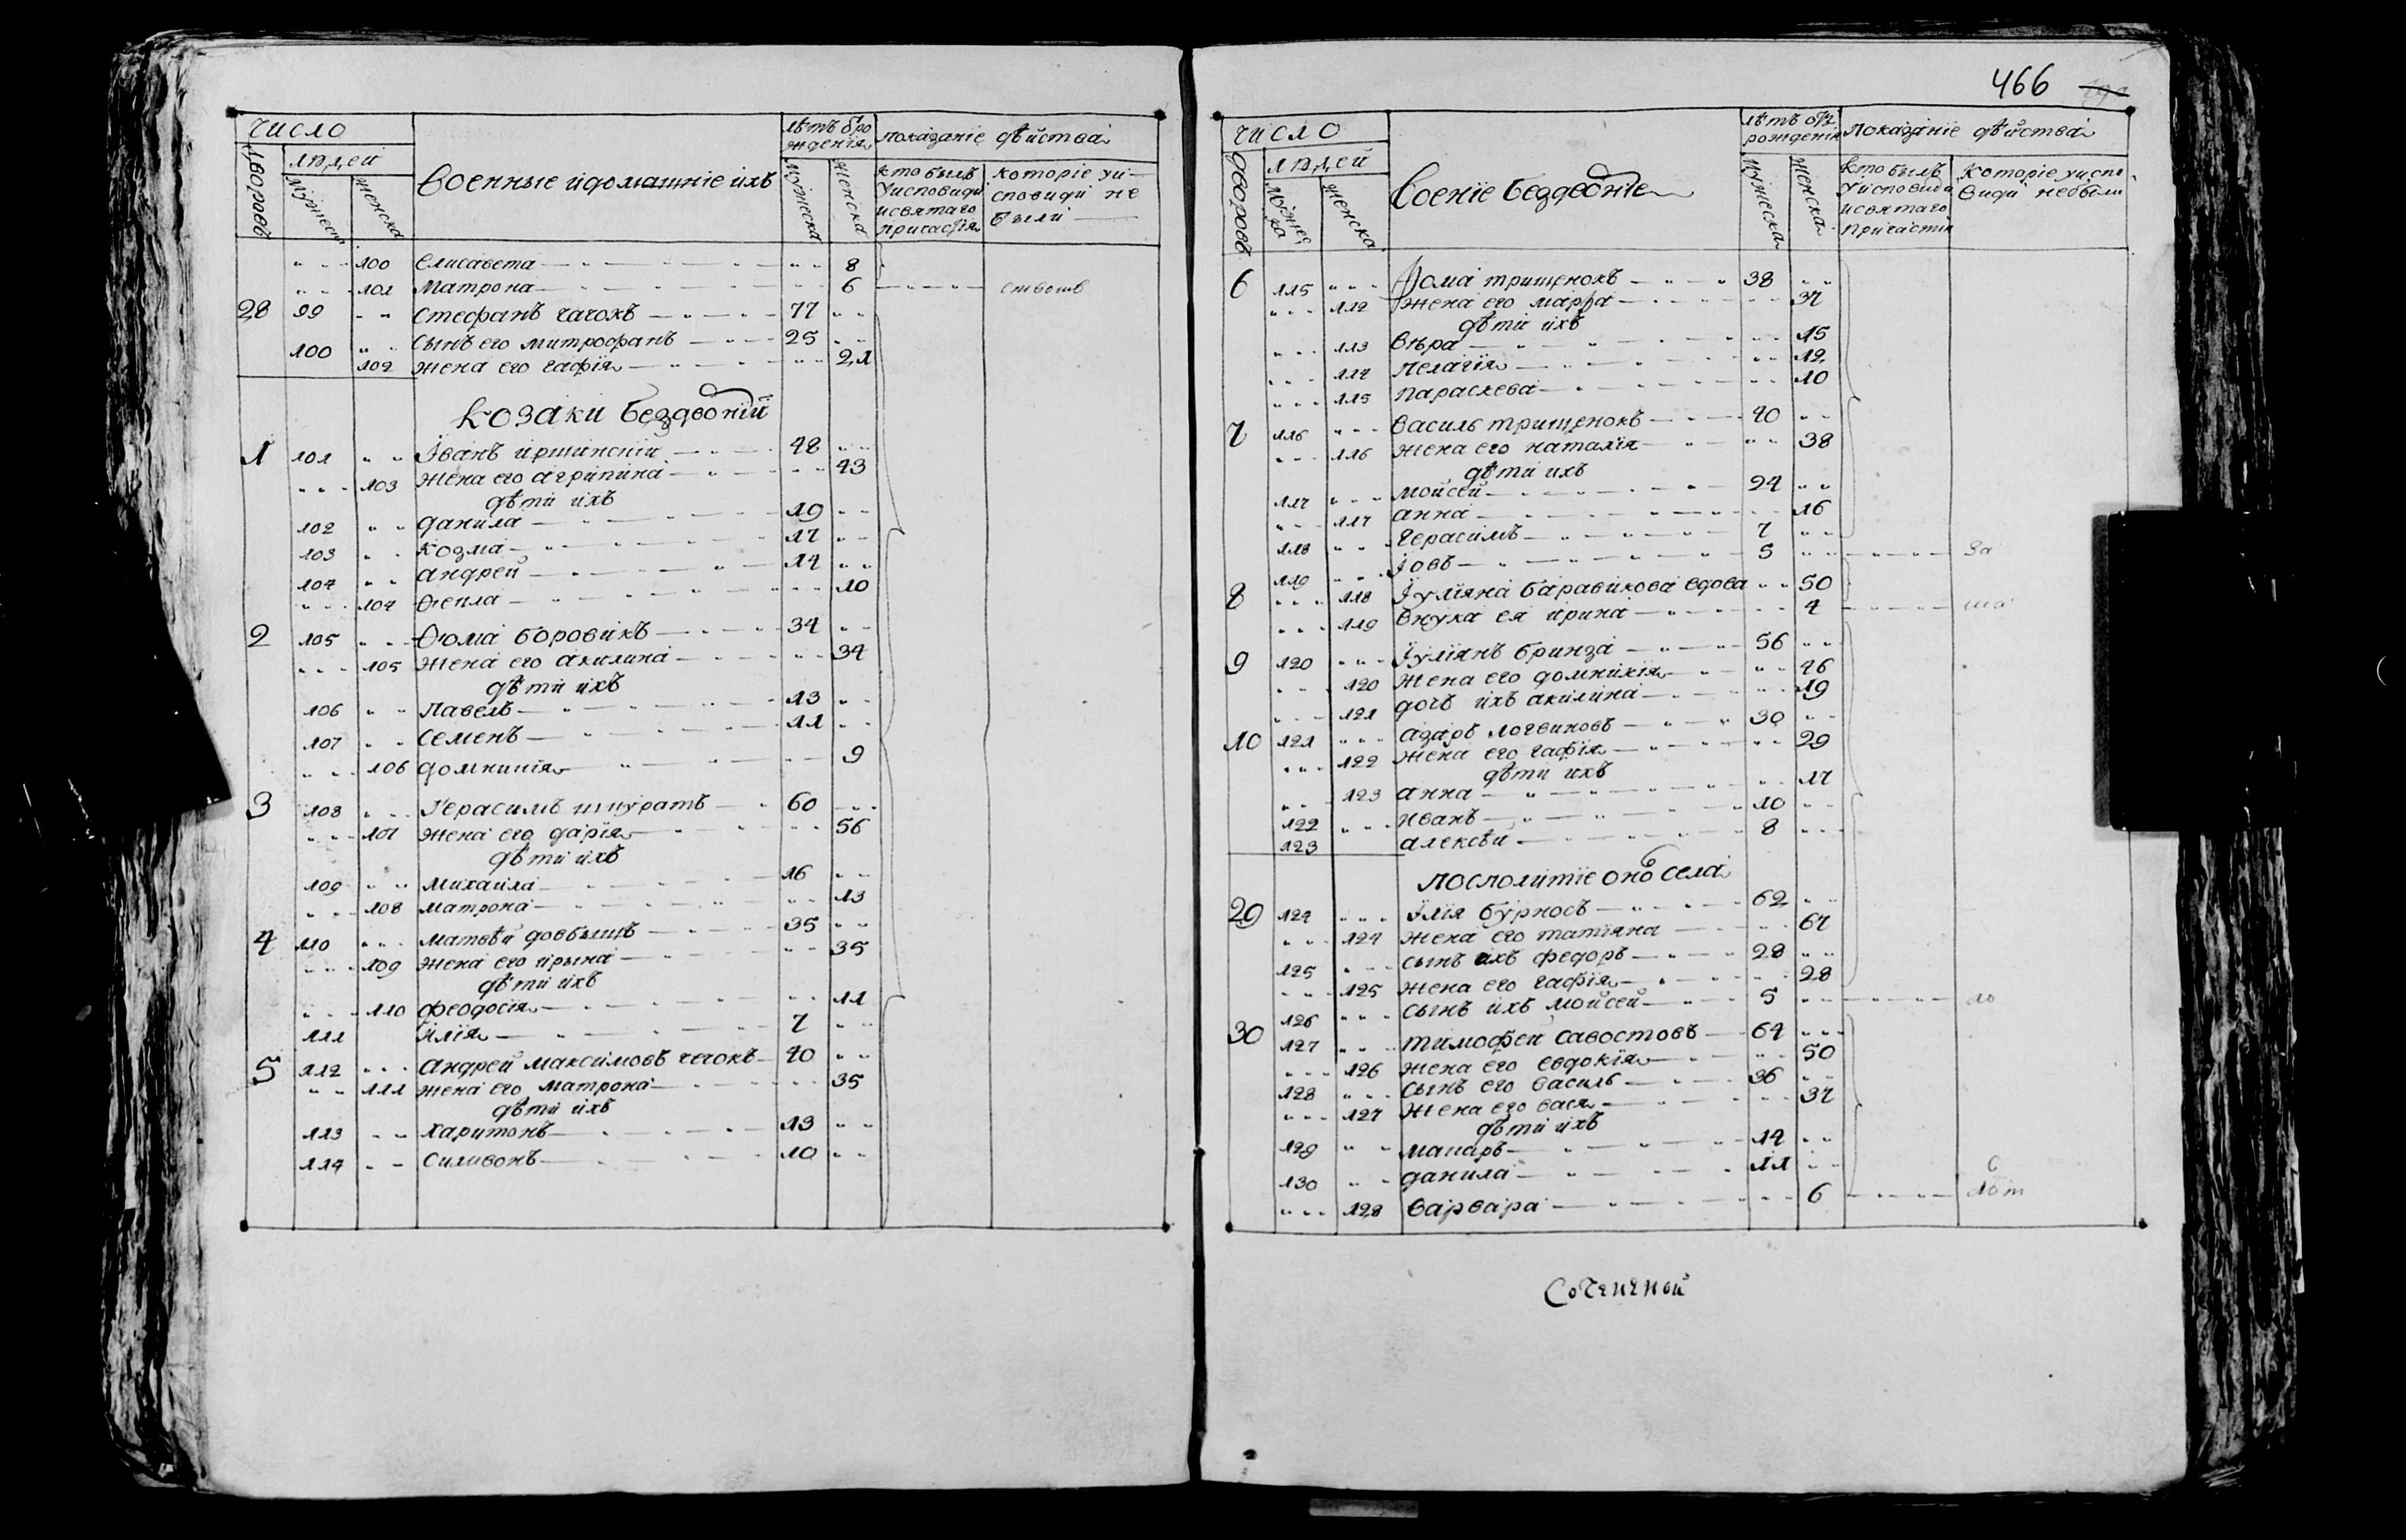 466
число
дворовъ
людей
мужеска
женска
Военные и домашніе ихъ
лѣтъ ѿ ро
жденія
мужеска
женска
показаніе дѣйства
кто былъ
у исповиди
и святаго
причастія
которіе у и
сповиди не
были
100 Елисавета 8
101 Матрона 6
28 99 Стефанъ чачокъ 77
100 Сынъ его Митрофанъ 25
102 жена его Гафія 21
Козаки бездворніи
1 101 Іванъ иршинскій 48
103 жена его Агрипина 43
дѣти ихъ
102 Данила 19
103 Козма 17
104 Андрей 14
104 Ѳекла 10
2 105 Ѳома боровикъ 34
105 жена его Акилина 34
дѣти ихъ
106 Павелъ 13
107 Семенъ 11
106 Домникія 9
3 108 Герасимъ шпуратъ 60
107 жена его Дарія 56
дѣти ихъ
109 Михайла 16
108 Матрона 13
4 110 Матвѣй довбышъ 35
109 жена его Ирына 35
дѣти ихъ
110 Феодосія 11
111 Илія 7
5 112 Андрей Максимовъ чечокъ 40
111 жена его Матрона 35
дѣти ихъ
113 Харитонъ 13
114 Силивонъ 10
число
дворовъ
людей
мужес
ка
женска
Воение бездворніе
лѣтъ ѿ
рожденія
мужеска
женска
показаніе дѣйства
кто былъ
у исповиди
и святаго
причастія
которіе у испо
види не были
6 115 Ѳома трищенокъ 38
112 жена его Марѳа 37
дѣти ихъ
113 Вѣра 15
114 Пелагія 12
115 Параскева 10
7 116 Василь трищенокъ 40
116 жена его Наталія 38
дѣти ихъ
117 Мойсей 24
117 Анна 16
118 Герасимъ 7
119 Іовъ 5 За
8 118 Іуліяна баравикова вдова 50
119 внука ея Ирина 4
9 120 Іуліянъ бринза 56
120 жена его Домникія 46
121 дочъ ихъ Акилина 19
10 121 Азаръ логвиновъ 30
122 жена его Гафія 29
дѣти ихъ
123 Анна 17
122 Иванъ 10
123 Алексѣй 8
Посполитіе оного села
29 124 Ілія бурносъ 62
124 жена его Татіяна 67
125 сынъ ихъ Федоръ 28
125 жена его Гафія 28
126 сынъ ихъ Мойсей 5
30 127 Тимофей Савостовъ 64
126 жена его Евдокія 50
128 сынъ его Василь 36
127 жена его Вася 37
дѣти ихъ
129 Макаръ 14
130 Данила 11
128 Варвара 6